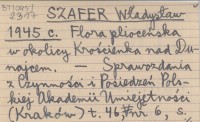 SZAFER Władysław
1945 c. Flora plioceńska
w okolicy Krościenka nad Du-
najcem. — Sprawozdania
z Czynności i Posiedzeń Pols-
kiej Akademii Umiejętności
(Kraków) t. 46, nr 6, s.